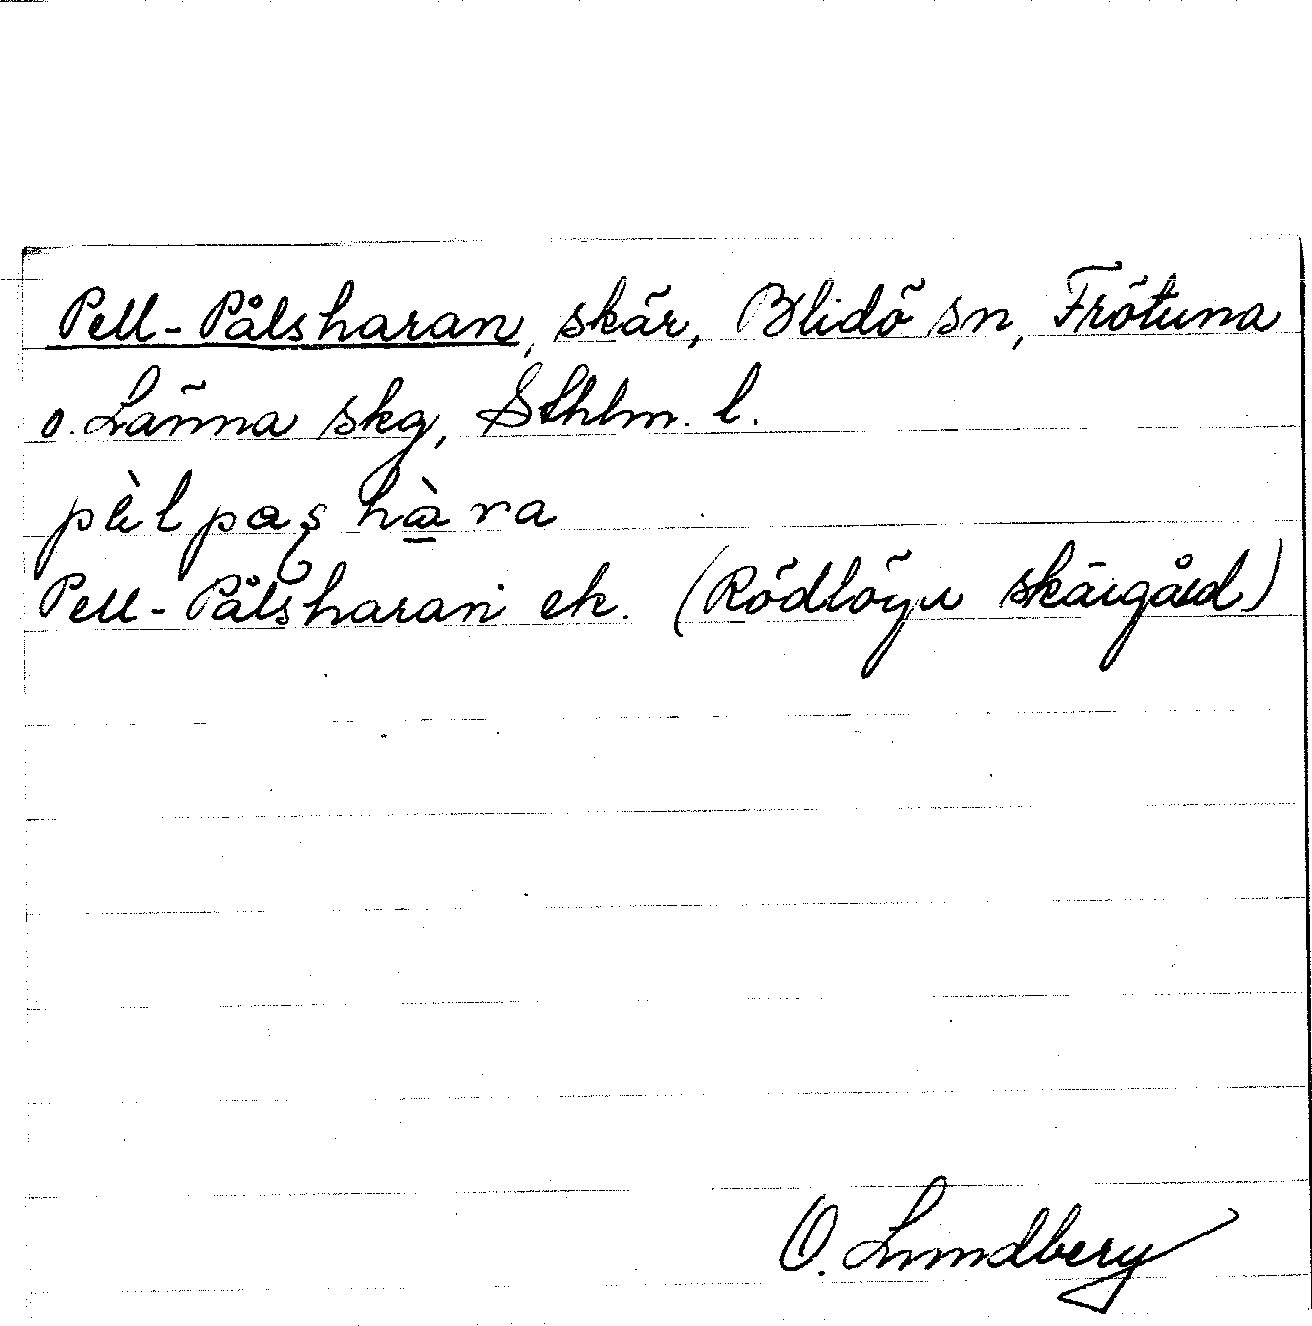 Pell-Pålsharan, skär, Blidö sn, Frötuna
o. Länna skg, Sthlm. l.
pèl paʂ hàra
Pell-Pålsharan ek. (Rödlöga skärgård)
O. Lundberg